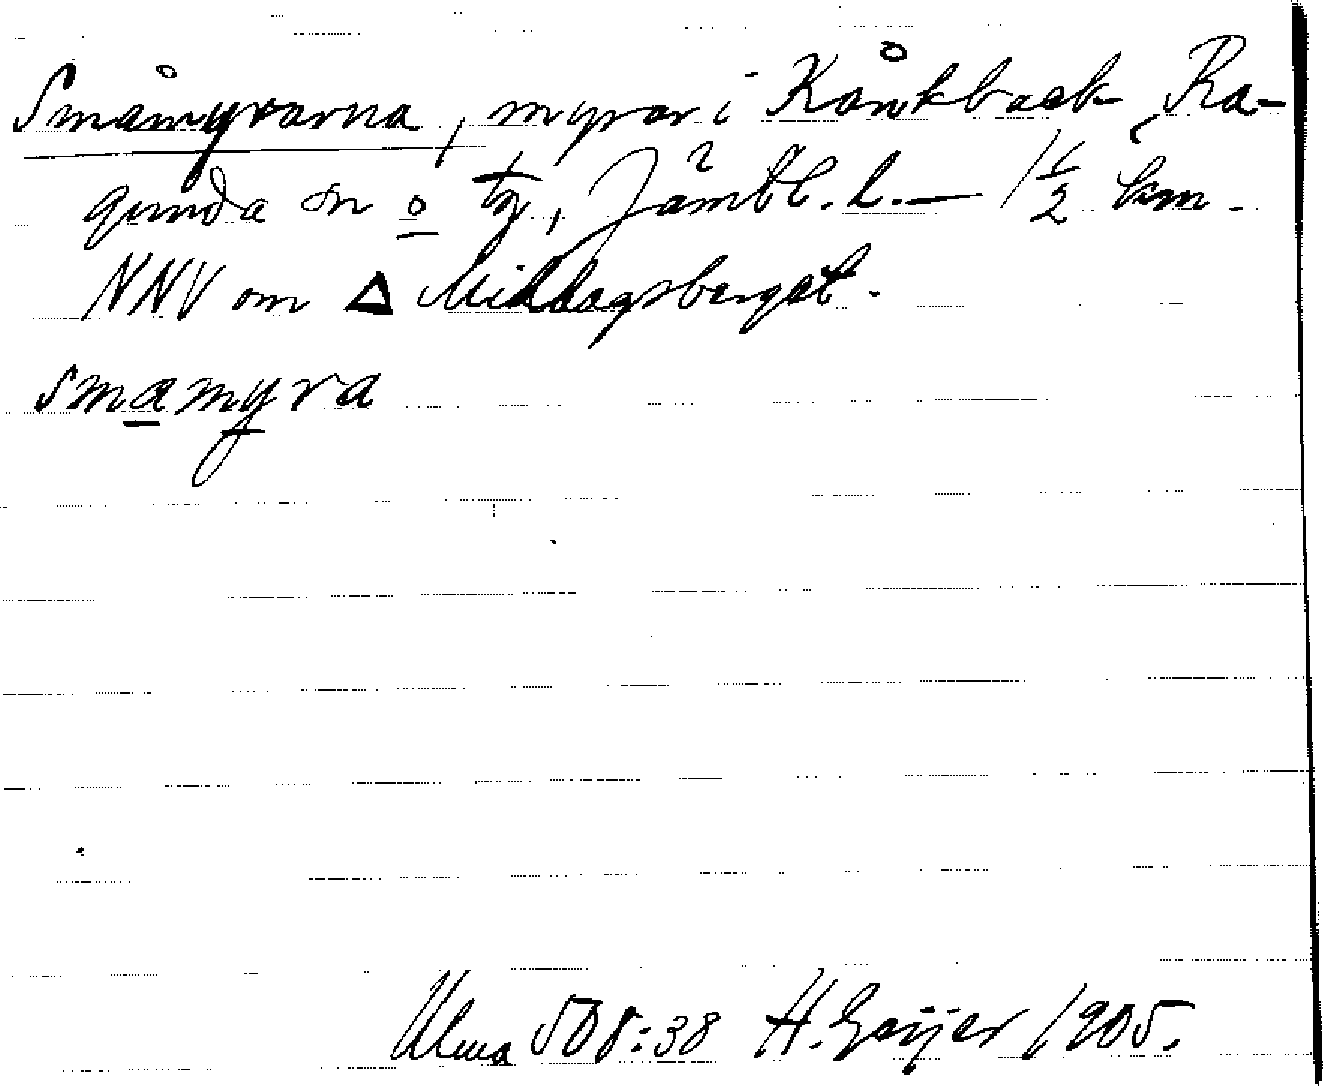 Småmyrarna, myrar i Kånkback, Ra-
gunda sn o tg, Jämtl. l. — 1½ km.
NNV om △ Middagsberget.
smamyra
Ulma 508:38 H. Geijer 1905.